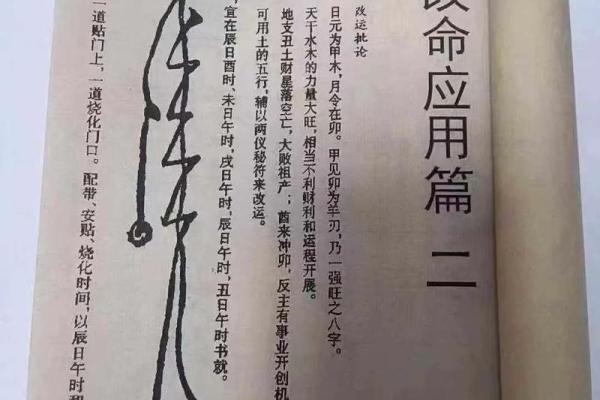 改命应用篇 二
改运批论
日元为甲木，月令在卯。甲见卯为羊刃，乃一强旺之八字。
天干水木的力量大旺，相当不利财利和运程开展。
地支丑土财星落空亡，大败祖产；酉来冲卯，反主有事业开创机
可用土的五行，辅以两仪秘符来改运。
，宜在辰日酉时、未日午时，戌日午时，辰日午时，丑日午时书就。
一道贴门上，一道烧化门口。配带、安贴、烧化时间，以辰日午时和